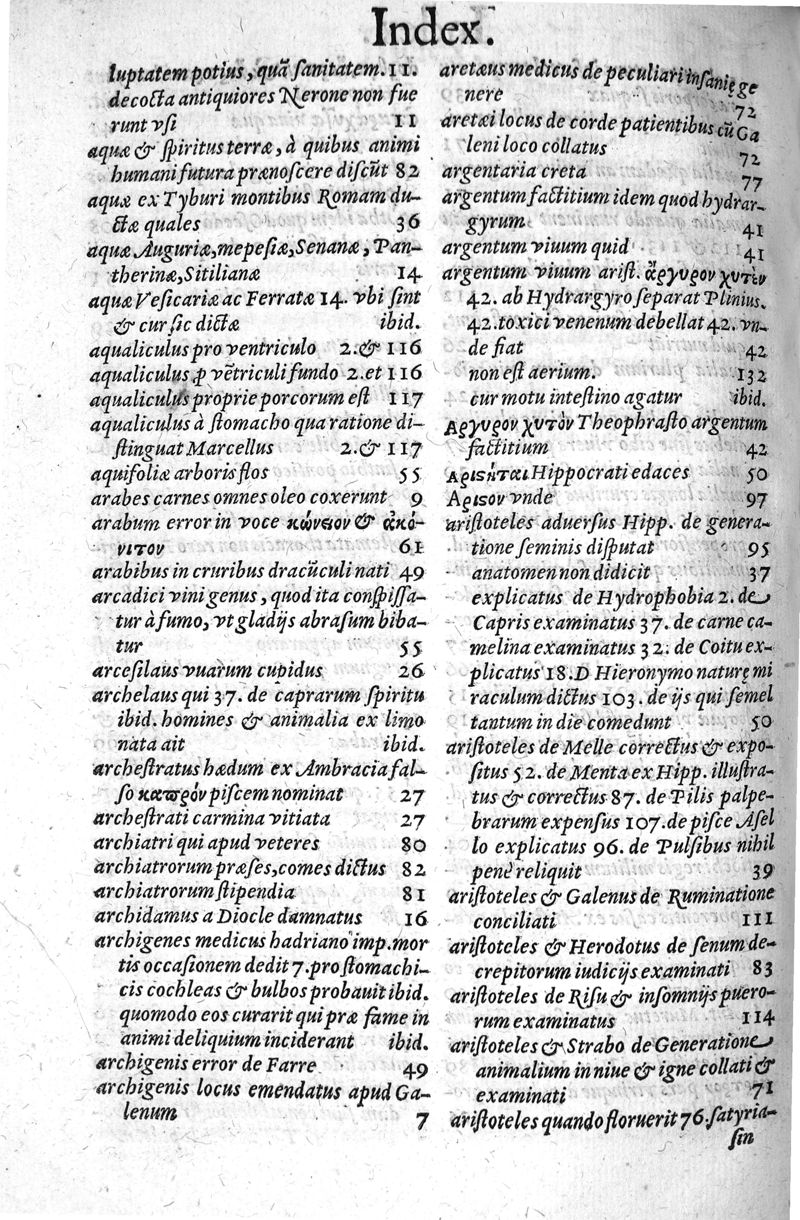 Index.
luptatem potius, quā sanitatem. 11.
decocta antiquiores Nerone non fue
runt vsi 11
aquæ & spiritus terræ, à quibus animi
humani futura prænoscere discūt 82
aquæ ex Tyburi montibus Romam du-
ctæ quales 36
aquæ Auguriæ, mepesiæ, Senanæ, Pan-
therinæ, Sitilianæ 14
aquæ Vesicariæ ac Ferratæ 14. vbi sint
& cur sic dictæ ibid.
aqualiculus pro ventriculo 2. & 116
aqualiculus ꝓ vētriculi fundo 2. et 116
aqualiculus proprie porcorum est 117
aqualiculus à stomacho qua ratione di-
stinguat Marcellus 2. & 117
aquifoliæ arboris flos 55
arabes carnes omnes oleo coxerunt 9
arabum error in voce κώνειον & ἀκό-
νιτον 61
arabibus in cruribus dracūculi nati 49
arcadici vini genus, quod ita conspissa-
tur à fumo, vt gladijs abrasum biba-
tur 55
arcesilaus vuarum cupidus 26
archelaus qui 37. de caprarum spiritu
ibid. homines & animalia ex limo
nata ait ibid.
archestratus hædum ex Ambracia fal-
so καπρόν piscem nominat 27
archestrati carmina vitiata 27
archiatri qui apud veteres 80
archiatrorum præses, comes dictus 82
archiatrorum stipendia 81
archidamus a Diocle damnatus 16
archigenes medicus hadriano imp. mor
tis occasionem dedit 7. pro stomachi-
cis cochleas & bulbos probauit ibid.
quomodo eos curarit qui præ fame in
animi deliquium inciderant ibid.
archigenis error de Farre 49
archigenis locus emendatus apud Ga-
lenum 7
aretæus medicus de peculiari insanię ge
nere 72
aretæi locus de corde patientibus cū Ga
leni loco collatus 72
argentaria creta 77
argentum factitium idem quod hydrar-
gyrum 41
argentum viuum quid 41
argentum viuum arist. ἄργυρον χυτὸν
42. ab Hydrargyro separat Plinius.
42. toxici venenum debellat 42. vn-
de fiat 42
non est aerium. 132
cur motu intestino agatur ibid.
Αργυρον χυτὸν Theophrasto argentum
factitium 42
Αριστῆται Hippocrati edaces 50
Αριστον vnde 97
aristoteles aduersus Hipp. de genera-
tione seminis disputat 95
anatomen non didicit 37
explicatus de Hydrophobia 2. de
Capris examinatus 37. de carne ca-
melina examinatus 32. de Coitu ex-
plicatus 18. D Hieronymo naturę mi
raculum dictus 103. de ijs qui semel
tantum in die comedunt 50
aristoteles de Melle correctus & expo-
situs 52. de Menta ex Hipp. illustra-
tus & correctus 87. de Pilis palpe-
brarum expensus 107. de pisce Asel
lo explicatus 96. de Pulsibus nihil
penè reliquit 39
aristoteles & Galenus de Ruminatione
conciliati 111
aristoteles & Herodotus de senum de-
crepitorum iudicijs examinati 83
aristoteles de Risu & insomnijs puero-
rum examinatus 114
aristoteles & Strabo de Generatione
animalium in niue & igne collati &
examinati 71
aristoteles quando floruerit 76. satyria-
sin